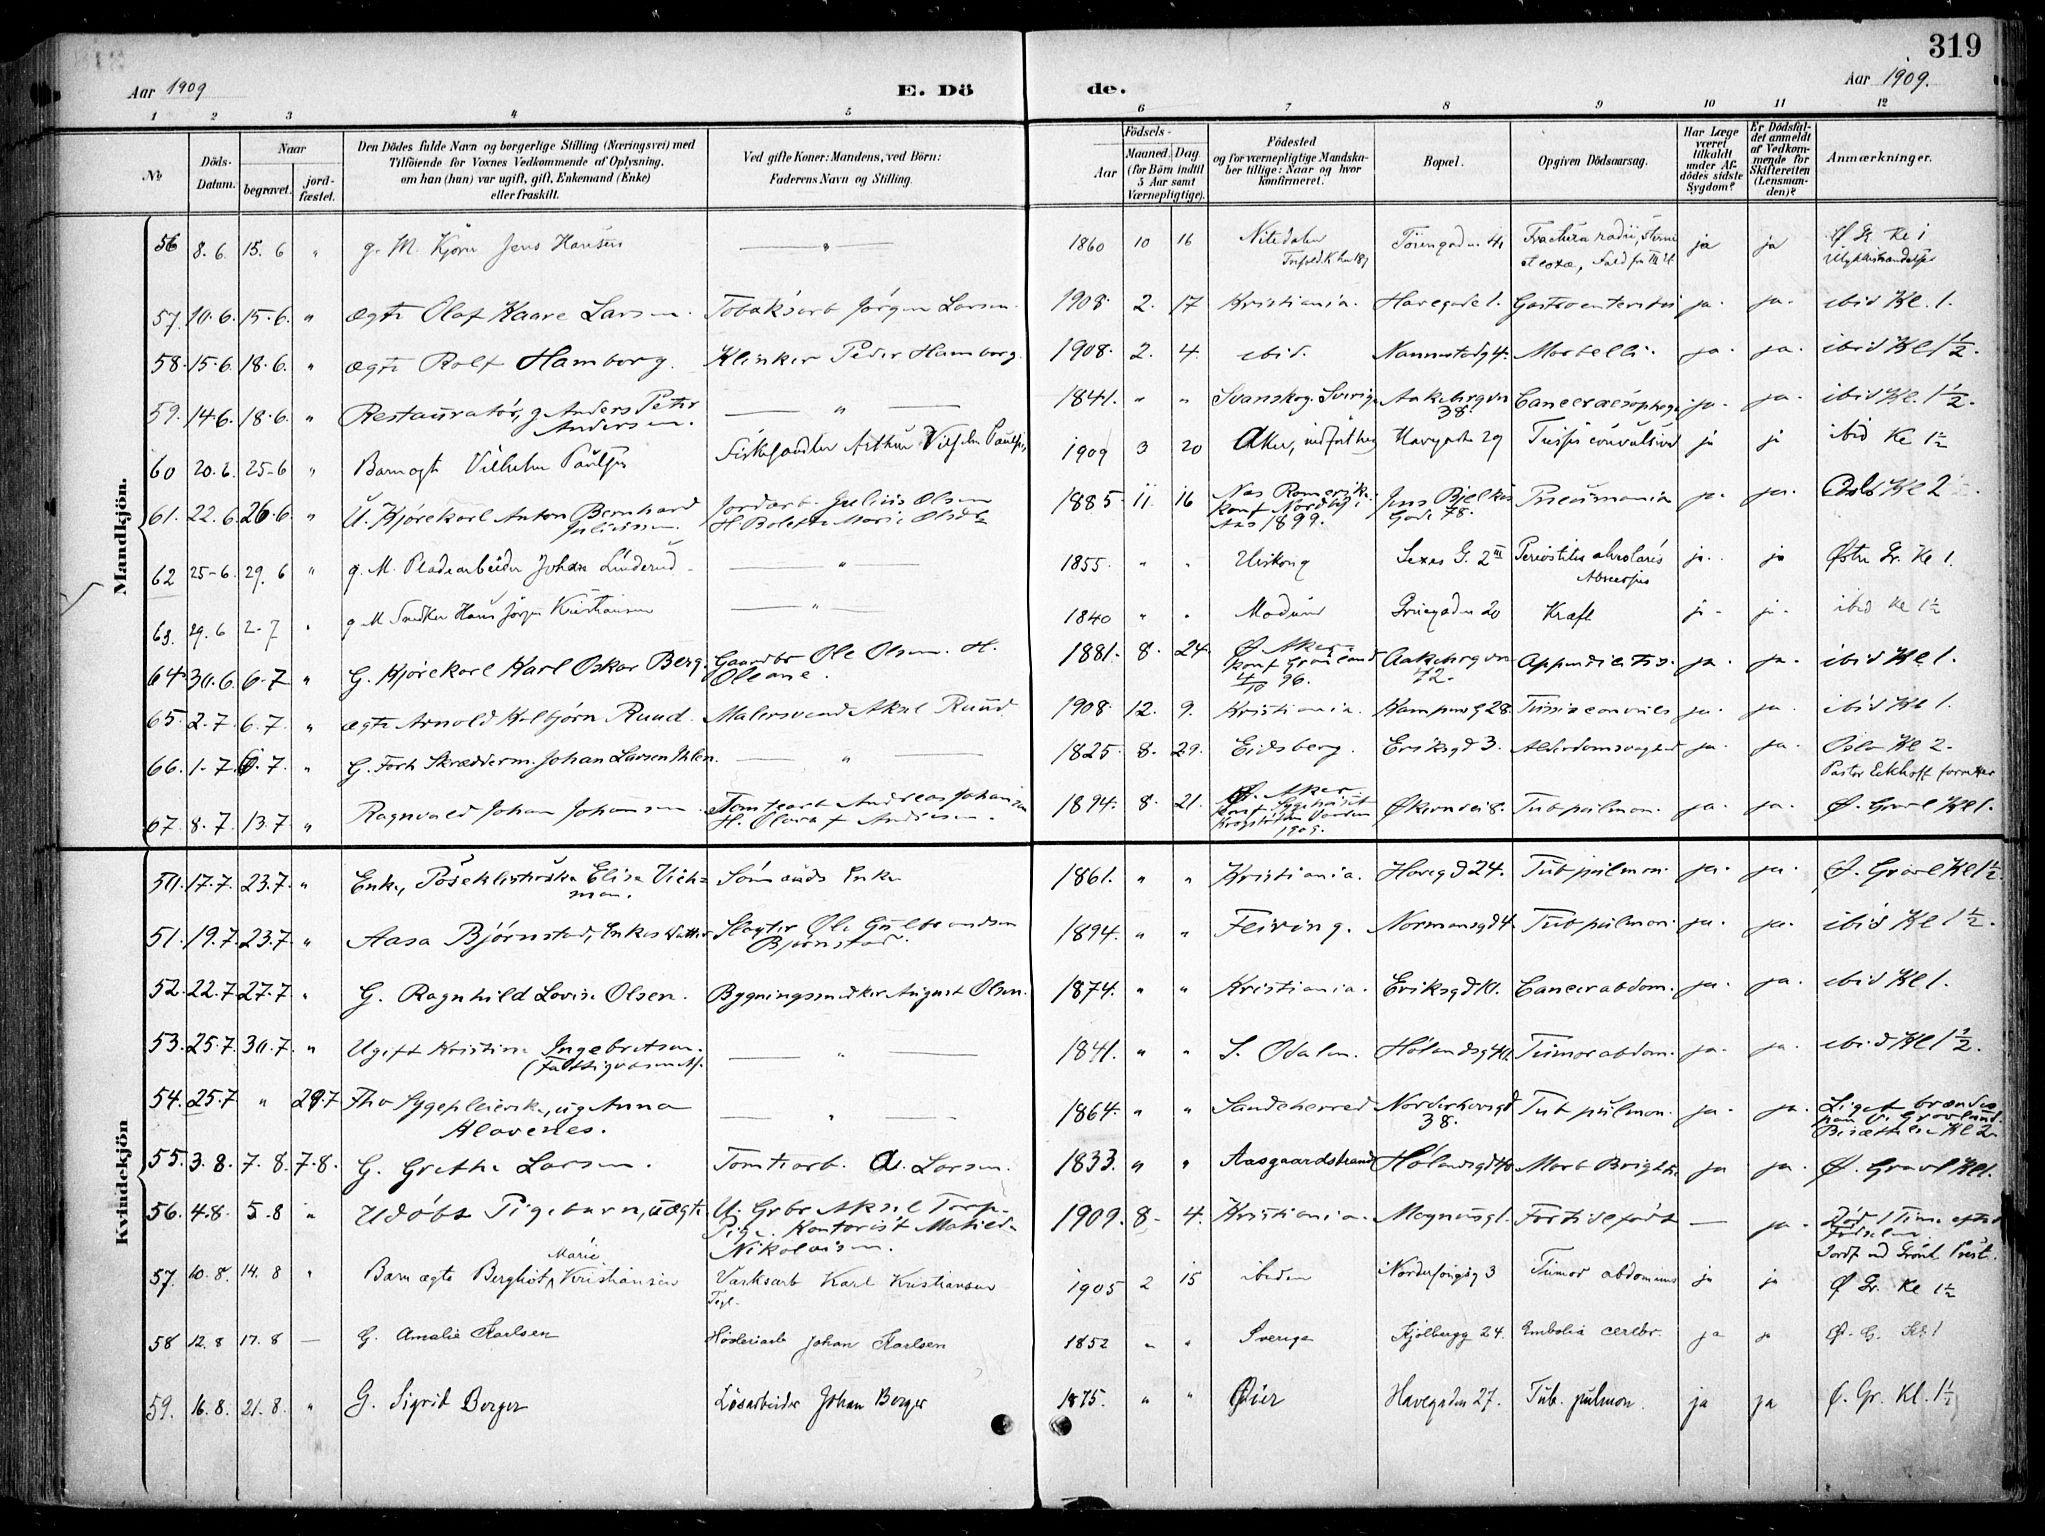 319
Aar 1909
E. Dö
de.
Aar 1909.
1 2 3 4 5 6 7 8 9 10 11 12
No
Döds-Datum.
Naar
begravet.
jord-fæstet.
Den Dödes fulde Navn og borgerlige Stilling (Næringsvei) med
Tilföiende for Voxnes Vedkommende af Oplysning,
om han (hun) var ugift, gift, Enkemand (Enke)
eller fraskilt.
Ved gifte Koner: Mandens, ved Börn:
Faderens Navn og Stilling.
Födsels-
Aar
Maaned. Dag
(for Börn indtil
5 Aar samt
Værnepligtige).
Födested
og for værnepligtige Mandska-
ber tillige: Naar og hvor
konfirmeret.
Bopæl.
Opgiven Dödsaarsag.
Har Læge
været
tilkaldt
under Af-
dödes sidste
Sygdom?
Er Dödsfal-
det anmeldt
af Vedkom-
mende for
Skifteretten
(Lensman-
den)?
Anmærkninger.
Mandkjön.
56 8.6. 15.6 " g. M. Kjörer Jens Hansen — " — 1860 10 16 Nitedalen ja ja
57 10.6. 15.6. " ægte Olaf Kaare Larsen. Tobaksarb Jörgen Larsen. 1908. 2. 17 Kristiania. Havegade 1. ja. ja. ibid Kl. 1.
58. 15.6 18.6. " ægte Rolf Hamborg. Klinker Peder Hamborg. 1908. 2. 4. ibid. Morbelli. ja. ja. ibid Kl 1½.
59. 14.6. 18.6. " Restauratör, g Anders Peter
Andersen. — " — 1841. " " Svanskog. Sverige
38. ja. ja. ibid Kl. 1½.
60 20.6. 25-6 " Barn ægte Vilhelm Paulsen Fiskehandler Arthur Vilhelm Paulsen 1909 3 20 Aker, ja ja ibid Kl 1½
61. 22.6. 26.6. " U. Kjörekarl Anton Bernhard
Juliussen. Jordarb. Julius Olsen 1885. 11. 16 Nes Romerike.
konf Nordby i
Aas 1899. Jens Bjelkes
Gade 78. Pneumonia ja. ja. Oslo Kl 2
62 25-6. 29.6 " g. M. Pladearbeider Johan Linderud — " — 1855. " " Periostitis alveolaris
ja. ja Östre Gr. Kl 1.
63. 29.6 2.7 " g M Snedker Hans Jörgen Kristiansen — " — 1840 " " Modum 20 Kræft ja. ja. ibid Kl 1½
64. 30.6. 6.7 " G. Kjörekarl Karl Oskar Berg. Gaardbr Ole Olsen. H.
Oleane. 1881. 8. 24. Ø. Aker.
konf Grönland
4/10 96. Appendicitis. ja. ja. ibid Kl 1.
65. 2.7. 6.7. " ægte Arnold Kolbjörn Ruud. Malersvend Aksel Ruud. 1908. 12. 9. Kristiania. Kampeng 28. Tussis convuls ja. ja. ibid Kl 1.
66. 1.7. 6.7. " G. Forh Skrædderm. Johan Larsen Ihlen. — " — 1825. 8. 29. Eidsberg. Eriksgd 3. Alderdomssvaghed ja. ja. Oslo Kl 2.
Pastor Eckhoff forretter
67. 8.7. 13.7. " Ragnvald Johan Johansen. Tomtearb Andreas Johansen
H. Olava f Andersen. 1894. 8. 21. Ø. Aker.
1909. Økernvei 8. Tub pulmon. ja. ja. Ø. Gravl Kl 1.
Kvindekjön
50. 17.7. 23.7. " Enke, Elise Vick-
man. Sömands Enke 1861. " " Kristiania. Havegd 24. Tub pulmon. ja. ja. Ø. Gravl Kl 1½.
51. 19.7. 23.7. " Aasa Björnstad, Enkes Datter Slagter Ole Gulbrandsen
Björnstad. 1894. " " Feiring. Normansgd 4. Tub pulmon. ja. ja. ibid Kl 1½.
52. 22.7 27.7 " G. Ragnhild Lovise Olsen. Bygningssnedker August Olsen. 1874. " " Kristiania. Eriksgd 10. Cancer abdom. ja. ja. ibid Kl 1.
53. 25.7. 30.7. " Ugift Kristine Ingebretsen.
— " — 1841. " " S. Odalen. Tumor abdom. ja. ja. ibid Kl 1½.
54. 25.7 " 29.7 Fhv Sygepleierske, ug Anna
Klavenes. — " — 1864. " " Sandeherred Norderhovsgd
38. Tub pulmon. ja. ja. Liget brændes
paa V. Gravlund.
Kl 2.
55. 3.8. 7.8. 7.8. G. Grethe Larsen. Tomtearb. A. Larsen. 1833. " " Aasgaardstrand Morb Brightii ja ja. Ø. Gravl Kl 1.
56. 4.8. 5.8 " Udöbt Pigebarn, uægte U. Grbr Aksel Torp.
Pige. Kontorist Mathilde
Nikolaisen. 1909. 8. 4. Kristiania. Magnusg 1. For tidl födt — ja. Död 1 Time efter
Födselen.
Jordf. ved Grönl. Prest.
57. 10.8. 14.8 " Barn ægte Bergliot Marie Kristiansen Værksarb Karl Kristiansen 1905 2 15 ibidem Tumor abdominis ja ja Ø Gr. Kl 1½
58 12.8 17.8 — G. Amalie Karlsen Johan Karlsen 1852 " " Sverige Kjölbergg 24. Embolia cerebr. ja ja Ø. G. Kl 1
59. 16.8. 21.8. " G. Sigrid Berger Lösarbeider Johan Berger 1875. " " Öier Havegaden 27. Tub. pulmon. ja ja Ø. Gr. Kl. 1½